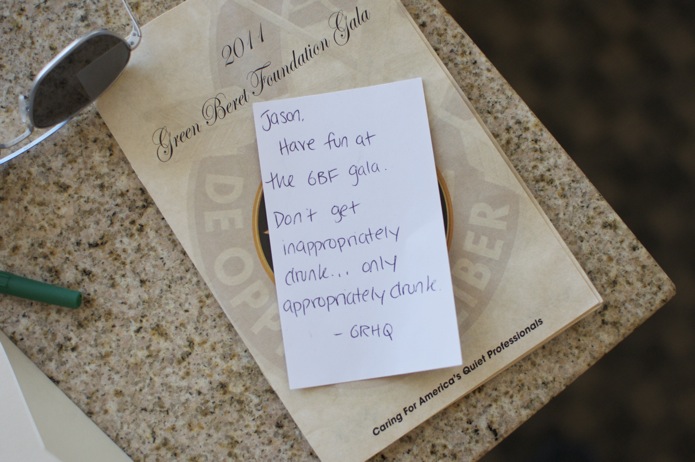 2011
Green Beret Foundation Gala
Jason.
Have fun at
the GBF gala.
Don't get
inappropriately
drunk... only
appropriately drunk.
- GRHQ
DE OPP
LIBER
Caring For America's Quiet Professionals